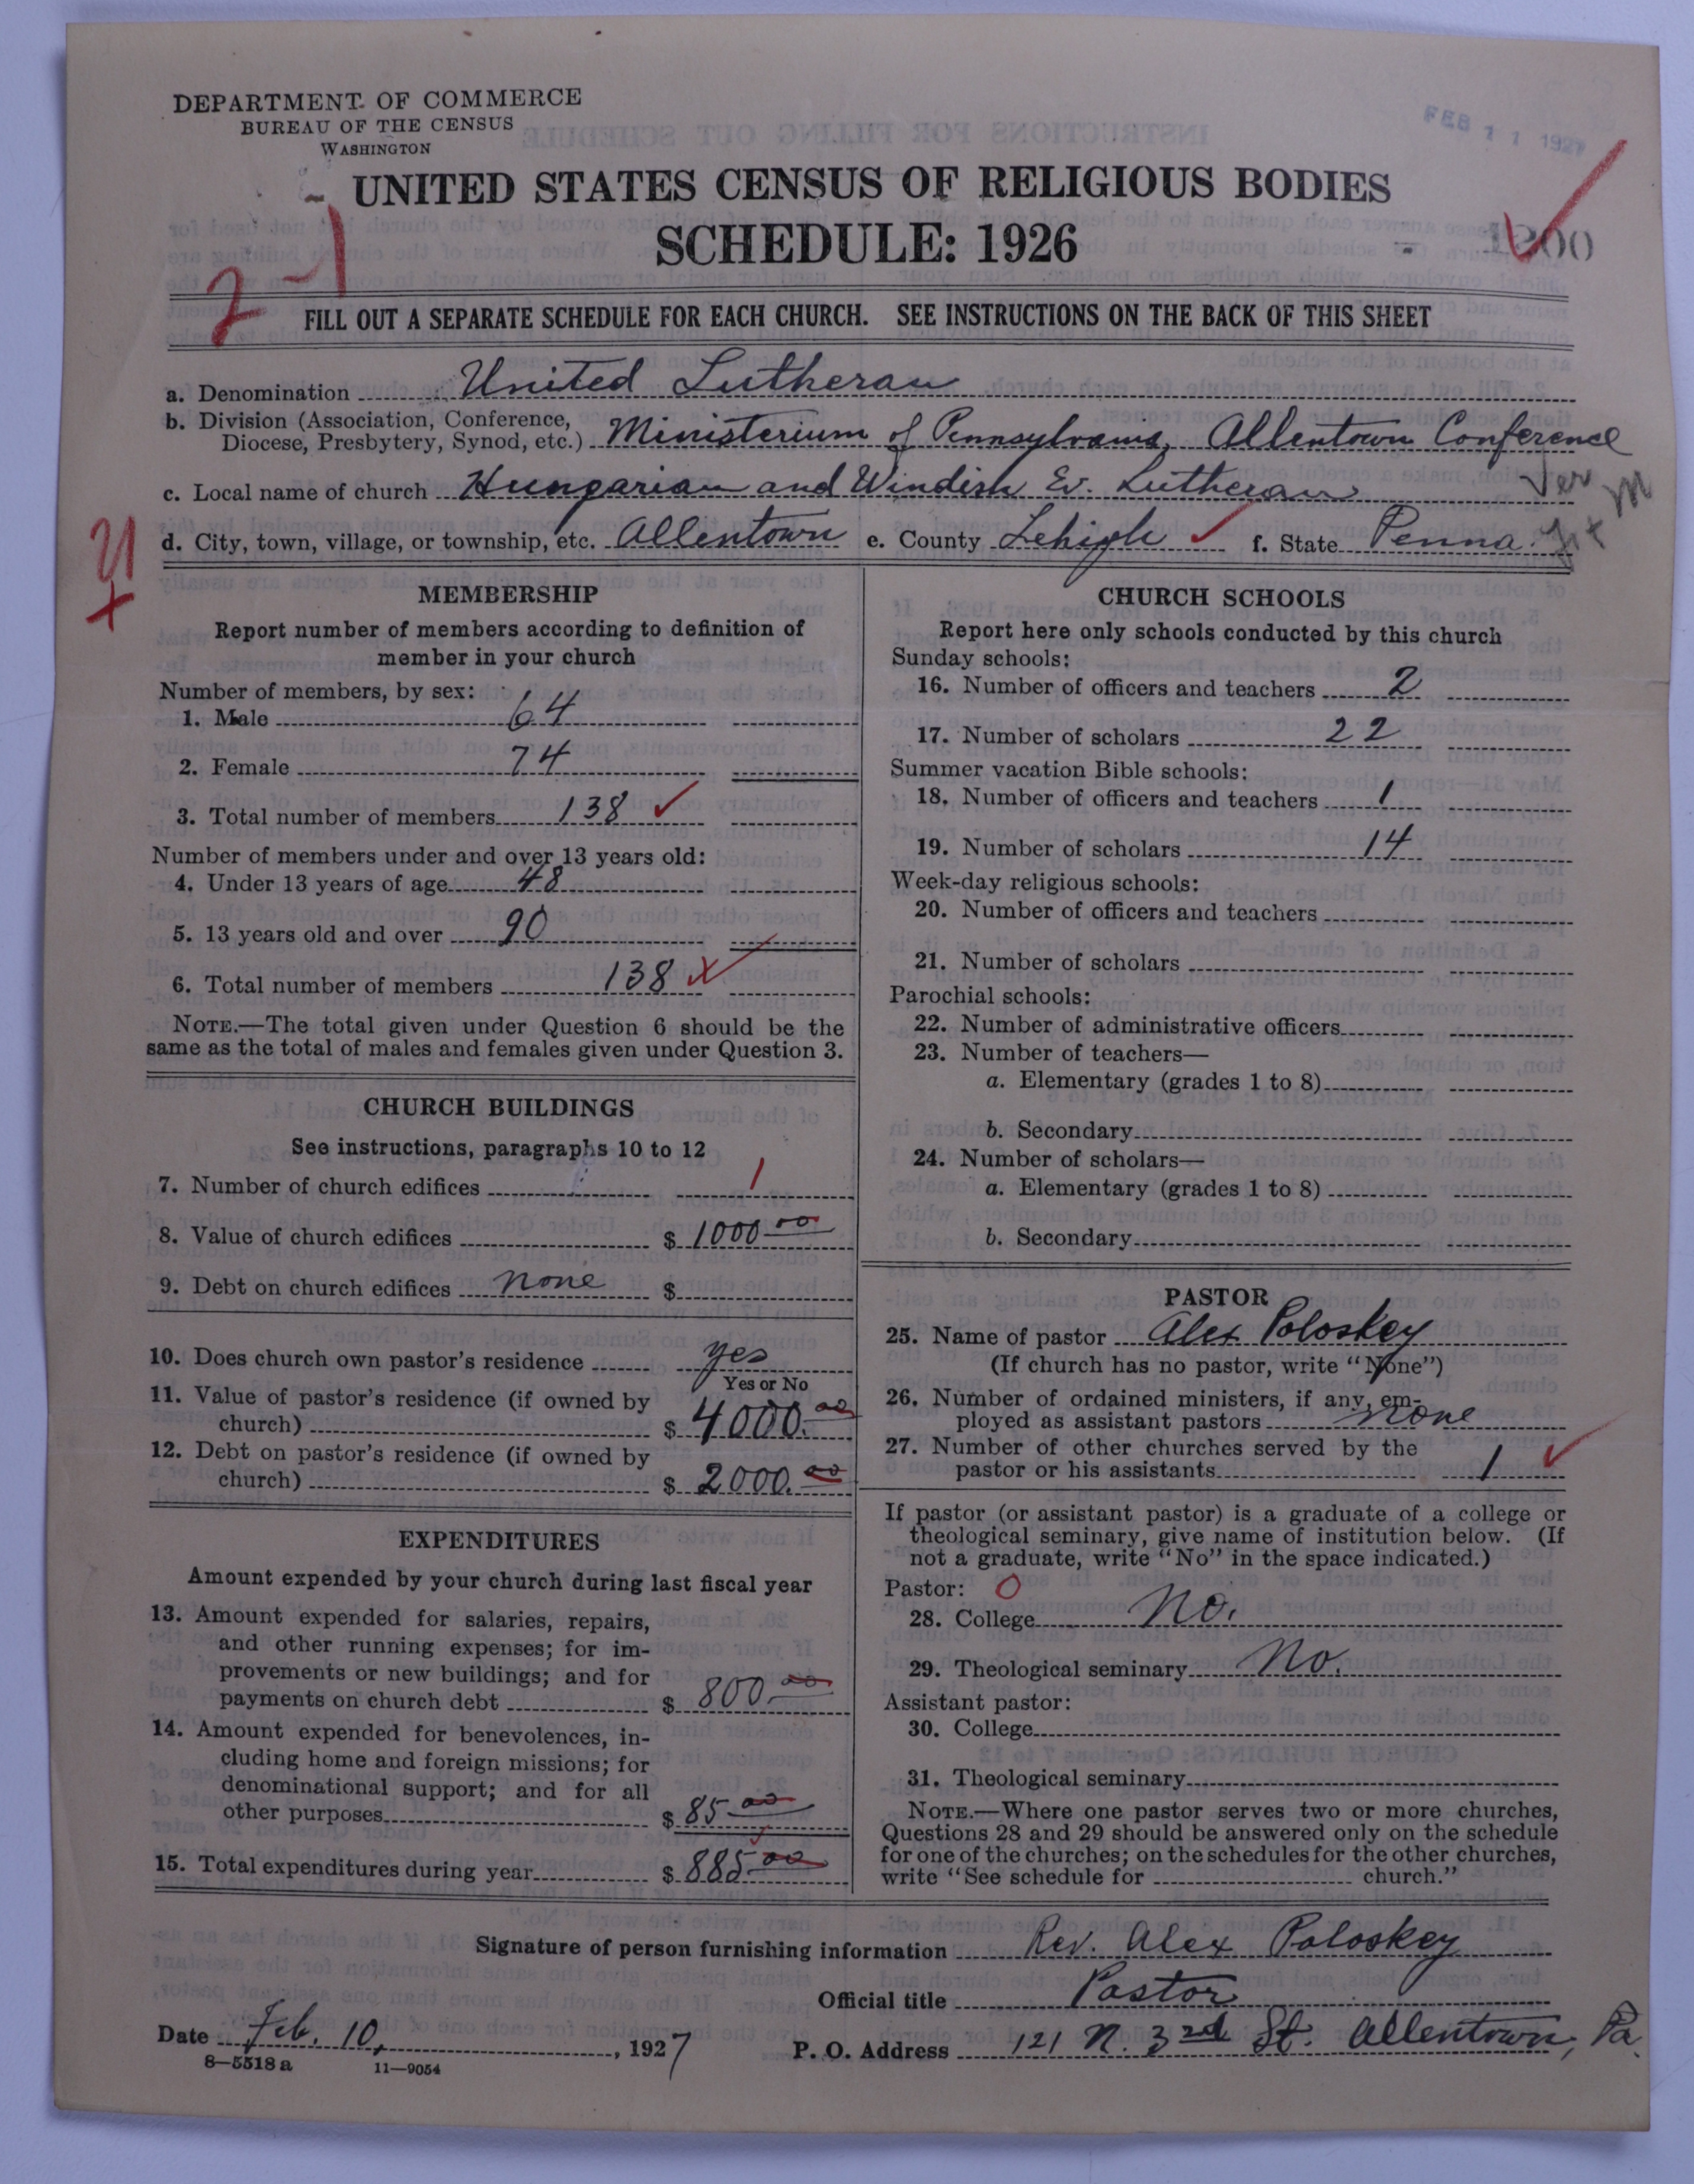 DEPARTMENT OF COMMERCE
BUREAU OF THE CENSUS
WASHINGTON
FEB 11 1927
UNITED STATES CENSUS OF RELIGIOUS BODIES
SCHEDULE: 1926
2-1
FILL OUT A SEPARATE SCHEDULE FOR EACH CHURCH. SEE INSTRUCTIONS ON THE BACK OF THIS SHEET
a. Denomination United Lutheran
b. Division (Association, Conference,
Diocese, Presbytery, Synod, etc.) Ministerium of Pennsylvania, Allentown Conference
c. Local name of church Hungarian and Windish Ev. Lutheran
d. City, town, village, or township, etc. Allentown e. County Lehigh f. State Penna.
MEMBERSHIP
Report number of members according to definition of
member in your church
Number of members, by sex:
1. Male 64
2. Female 74
3. Total number of members 138
Number of members under and over 13 years old:
4. Under 13 years of age 48
5. 13 years old and over 90
6. Total number of members 138
NOTE.—The total given under Question 6 should be the
same as the total of males and females given under Question 3.
CHURCH BUILDINGS
See instructions, paragraphs 10 to 12
7. Number of church edifices 1
8. Value of church edifices $ 1000.00
9. Debt on church edifices none $
10. Does church own pastor's residence yes
Yes or No
11. Value of pastor's residence (if owned by
church) $ 4000.00
12. Debt on pastor's residence (if owned by
church) $ 2000.00
EXPENDITURES
Amount expended by your church during last fiscal year
13. Amount expended for salaries, repairs,
and other running expenses; for im-
provements or new buildings; and for
payments on church debt $ 800.00
14. Amount expended for benevolences, in-
cluding home and foreign missions; for
denominational support; and for all
other purposes $ 85.00
15. Total expenditures during year $ 885.00
CHURCH SCHOOLS
Report here only schools conducted by this church
Sunday schools:
16. Number of officers and teachers 2
17. Number of scholars 22
Summer vacation Bible schools:
18. Number of officers and teachers 1
19. Number of scholars 14
Week-day religious schools:
20. Number of officers and teachers
21. Number of scholars
Parochial schools:
22. Number of administrative officers
23. Number of teachers—
a. Elementary (grades 1 to 8)
b. Secondary
24. Number of scholars—
a. Elementary (grades 1 to 8)
b. Secondary
PASTOR
25. Name of pastor Alex Poloskey
(If church has no pastor, write "None")
26. Number of ordained ministers, if any, em-
ployed as assistant pastors none
27. Number of other churches served by the
pastor or his assistants 1
If pastor (or assistant pastor) is a graduate of a college or
theological seminary, give name of institution below. (If
not a graduate, write "No" in the space indicated.)
Pastor: O
28. College No.
29. Theological seminary No.
Assistant pastor:
30. College
31. Theological seminary
NOTE.—Where one pastor serves two or more churches,
Questions 28 and 29 should be answered only on the schedule
for one of the churches; on the schedules for the other churches,
write "See schedule for church."
Signature of person furnishing information Rev. Alex Poloskey
Official title Pastor
Date Feb. 10, 1927
P. O. Address 121 N. 3rd St. Allentown, Pa.
8—5518 a 11—9054